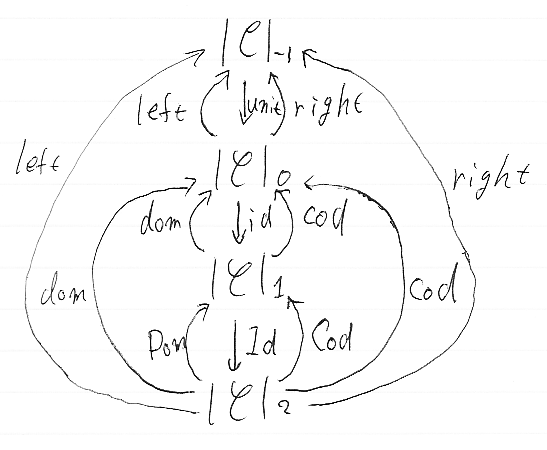 |C|₋₁
left unit right
left right
|C|₀
dom id cod
|C|₁
dom cod
Dom Id Cod
|C|₂